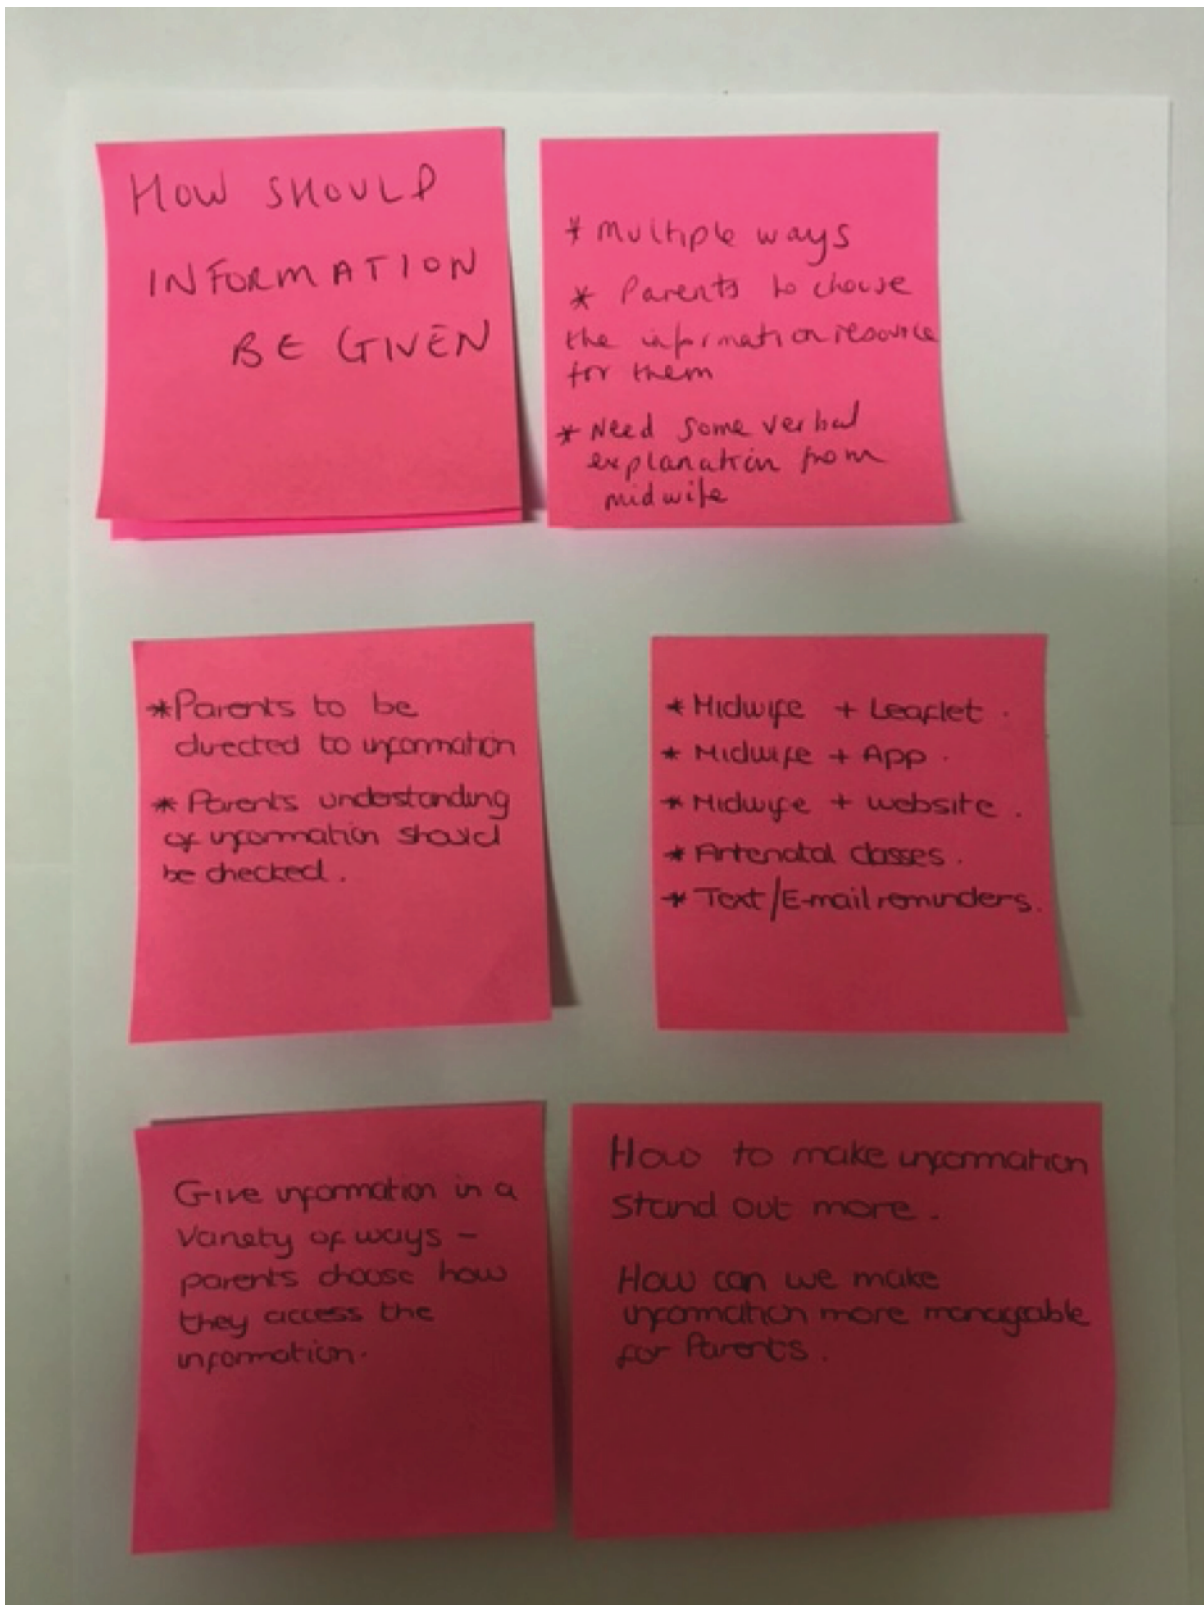 HOW SHOULD
INFORMATION
BE GIVEN
* Multiple ways
* Parents to choose
the information resource
for them
* Need some verbal
explanation from
midwife
* Parents to be
directed to information
* Parents understanding
of information should
be checked.
* Midwife + Leaflet.
* Midwife + App.
* Midwife + website.
* Antenatal classes.
* Text/E-mail reminders.
Give information in a
variety of ways -
parents choose how
they access the
information.
How to make information
stand out more.
How can we make
information more manageable
for Parents.